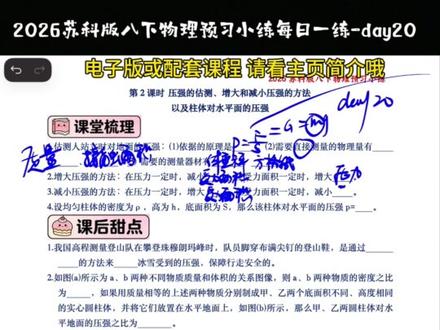 2026苏科版八下物理预习小练每日一练-day20
电子版或配套课程 请看主页简介哦
2026 苏科版八下物理预习小练
第 2 课时 压强的估测、增大和减小压强的方法
以及柱体对水平面的压强
day 20
课堂梳理
估测人站立时对地面的压强:(1)依据的原理是
(2)需要直接测量的物理量有
质量
要的测量器材有
2.增大压强的方法:在压力一定时,减小
受力面积一定时,增大
压力
3.减小压强的方法:在压力一定时,增大
受力面积一定时,减小
4.设均匀柱体的密度为ρ,高为 h,底面积为 S,那么该柱体对水平面的压强 p=
课后甜点
1.我国高程测量登山队在攀登珠穆朗玛峰时,队员脚穿布满尖钉的登山鞋,是通过
的方法来
冰雪受到的压强,保障行走安全的。
2.如图(a)所示为 a、b 两种不同物质质量和体积的关系图像,则 a、b 两种物质的密度之比
为
,如果用质量相等的上述两种物质分别制成甲、乙两个底面积不同、高度相同
的实心圆柱体,并将它们放置在水平地面上,如图(b)所示,那么甲、乙两圆柱体对水
平地面的压强之比为